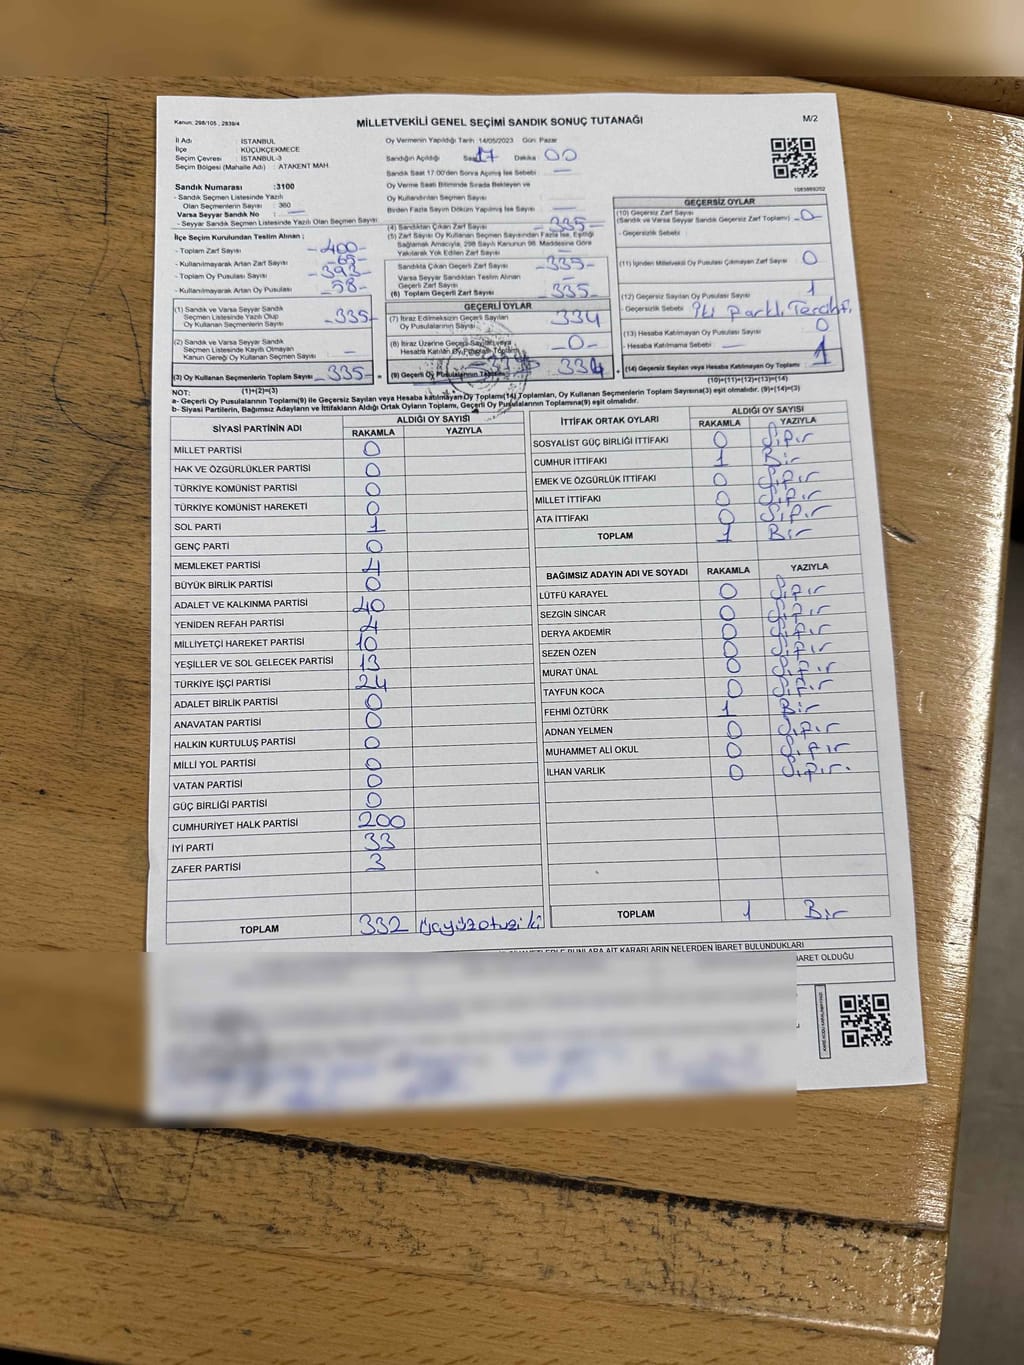 Kanun: 298/105 , 2839/4
MİLLETVEKİLİ GENEL SEÇİMİ SANDIK SONUÇ TUTANAĞI
M/2
İl Adı : İSTANBUL
İlçe : KÜÇÜKÇEKMECE
Seçim Çevresi : İSTANBUL-3
Seçim Bölgesi (Mahalle Adı) : ATAKENT MAH.
Sandık Numarası :3100
- Sandık Seçmen Listesinde Yazılı
Olan Seçmenlerin Sayısı : 380
Varsa Seyyar Sandık No : —
- Seyyar Sandık Seçmen Listesinde Yazılı Olan Seçmen Sayısı:
Oy Vermenin Yapıldığı Tarih 14/05/2023 Gün: Pazar
Sandığın Açıldığı Saat 17 Dakika 00
Sandık Saat 17:00'den Sonra Açılmış İse Sebebi —
Oy Verme Saati Bitiminde Sırada Bekleyen ve
Oy Kullandırılan Seçmen Sayısı —
Birden Fazla Sayım Döküm Yapılmış İse Sayısı —
İlçe Seçim Kurulundan Teslim Alınan ;
- Toplam Zarf Sayısı : -400-
- Kullanılmayarak Artan Zarf Sayısı : -65-
- Toplam Oy Pusulası Sayısı : -393-
- Kullanılmayarak Artan Oy Pusulası : -58-
(1) Sandık ve Varsa Seyyar Sandık
Seçmen Listesinde Yazılı Olup
Oy Kullanan Seçmenlerin Sayısı -335-
(2) Sandık ve Varsa Seyyar Sandık
Seçmen Listesinde Kayıtlı Olmayan
Kanun Gereği Oy Kullanan Seçmen Sayısı —
(3) Oy Kullanan Seçmenlerin Toplam Sayısı -335-
(1)+(2)=(3)
(4) Sandıktan Çıkan Zarf Sayısı -335-
(5) Zarf Sayısı Oy Kullanan Seçmen Sayısından Fazla İse, Eşitliği
Sağlamak Amacıyla, 298 Sayılı Kanunun 98. Maddesine Göre
Yakılarak Yok Edilen Zarf Sayısı —
Sandıkta Çıkan Geçerli Zarf Sayısı -335-
Varsa Seyyar Sandıktan Teslim Alınan
Geçerli Zarf Sayısı —
(6) Toplam Geçerli Zarf Sayısı -335-
GEÇERLİ OYLAR
(7) İtiraz Edilmeksizin Geçerli Sayılan
Oy Pusulalarının Sayısı 334
(8) İtiraz Üzerine Geçerli Sayılan veya
Hesaba Katılan Oy Pusulası Toplamı -0-
(9) Geçerli Oy Pusulalarının Toplamı 334
1083889202
GEÇERSİZ OYLAR
(10) Geçersiz Zarf Sayısı
(Sandık ve Varsa Seyyar Sandık Geçersiz Zarf Toplamı) -0-
- Geçersizlik Sebebi :
(11) İçinden Milletvekili Oy Pusulası Çıkmayan Zarf Sayısı 0
(12) Geçersiz Sayılan Oy Pusulası Sayısı 1
- Geçersizlik Sebebi : İki Partili Tercihi
(13) Hesaba Katılmayan Oy Pusulası Sayısı 0
- Hesaba Katılmama Sebebi : —
(14) Geçersiz Sayılan veya Hesaba Katılmayan Oy Toplamı : 1
(10)+(11)+(12)+(13)=(14)
NOT:
a- Geçerli Oy Pusulalarının Toplamı(9) ile Geçersiz Sayılan veya Hesaba katılmayan Oy Toplamı(14) Toplamları, Oy Kullanan Seçmenlerin Toplam Sayısına(3) eşit olmalıdır. (9)+(14)=(3)
b- Siyasi Partilerin, Bağımsız Adayların ve İttifakların Aldığı Ortak Oyların Toplamı, Geçerli Oy Pusulalarının Toplamına(9) eşit olmalıdır.
SİYASİ PARTİNİN ADI ALDIĞI OY SAYISI
RAKAMLA YAZIYLA
MİLLET PARTİSİ 0
HAK VE ÖZGÜRLÜKLER PARTİSİ 0
TÜRKİYE KOMÜNİST PARTİSİ 0
TÜRKİYE KOMÜNİST HAREKETİ 0
SOL PARTİ 1
GENÇ PARTİ 0
MEMLEKET PARTİSİ 4
BÜYÜK BİRLİK PARTİSİ 0
ADALET VE KALKINMA PARTİSİ 40
YENİDEN REFAH PARTİSİ 4
MİLLİYETÇİ HAREKET PARTİSİ 10
YEŞİLLER VE SOL GELECEK PARTİSİ 13
TÜRKİYE İŞÇİ PARTİSİ 24
ADALET BİRLİK PARTİSİ 0
ANAVATAN PARTİSİ 0
HALKIN KURTULUŞ PARTİSİ 0
MİLLİ YOL PARTİSİ 0
VATAN PARTİSİ 0
GÜÇ BİRLİĞİ PARTİSİ 0
CUMHURİYET HALK PARTİSİ 200
İYİ PARTİ 33
ZAFER PARTİSİ 3
TOPLAM 332 Üçyüzotuziki
İTTİFAK ORTAK OYLARI ALDIĞI OY SAYISI
RAKAMLA YAZIYLA
SOSYALİST GÜÇ BİRLİĞİ İTTİFAKI 0 Sıfır
CUMHUR İTTİFAKI 1 Bir
EMEK VE ÖZGÜRLÜK İTTİFAKI 0 Sıfır
MİLLET İTTİFAKI 0 Sıfır
ATA İTTİFAKI 0 Sıfır
TOPLAM 1 Bir
BAĞIMSIZ ADAYIN ADI VE SOYADI RAKAMLA YAZIYLA
LÜTFÜ KARAYEL 0 Sıfır
SEZGİN SİNCAR 0 Sıfır
DERYA AKDEMİR 0 Sıfır
SEZEN ÖZEN 0 Sıfır
MURAT ÜNAL 0 Sıfır
TAYFUN KOCA 0 Sıfır
FEHMİ ÖZTÜRK 1 Bir
ADNAN YELMEN 0 Sıfır
MUHAMMET ALİ OKUL 0 Sıfır
İLHAN VARLIK 0 Sıfır.
TOPLAM 1 Bir
BUNLARA AİT KARARLARIN NELERDEN İBARET BULUNDUKLARI
BARET OLDUĞU